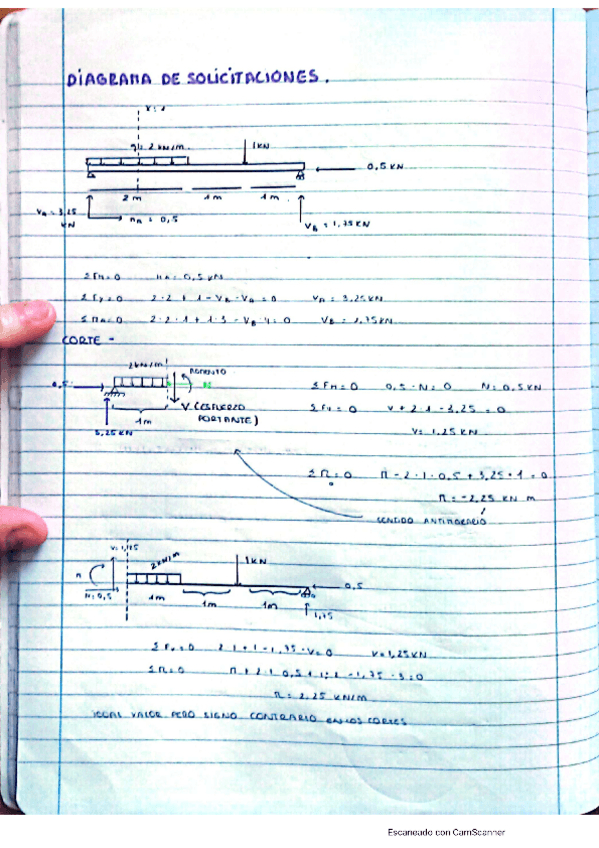 DIAGRAMA DE SOLICITACIONES.
q = 2 kN/m
1KN
0,5 KN
2m 1m 1m
VA = 3,25 KN
HA = 0,5
VB = 1,75 KN
ΣFH=0 HA = 0,5 KN
ΣFy=0 2·2 + 1 - VB - VA = 0 VA = 3,25KN
ΣMA=0 2·2·1 + 1·3 - VB·4 = 0 VB = 1,75KN
CORTE -
2kN/m
MOMENTO
0,5
N
V (ESFUERZO
PORTANTE)
1m
3,25 KN
ΣFH=0 0,5 - N = 0 N = 0,5 KN
ΣFV=0 V + 2·1 - 3,25 = 0
V = 1,25 KN
ΣM=0 M - 2·1·0,5 + 3,25·1 = 0
M = -2,25 KN m
SENTIDO ANTIHORARIO
V = 1,25
2kN/m
1KN
M
N=0,5
0,5
1m 1m 1m
1,75
ΣFV=0 2·1 + 1 - 1,75 - V = 0 V = 1,25KN
ΣM=0
M = 2,25 KN/m
IGUAL VALOR PERO SIGNO CONTRARIO EN LOS CORTES
Escaneado con CamScanner